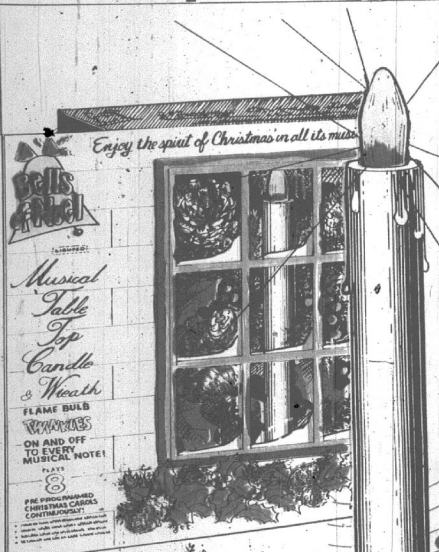 Enjoy the spirit of Christmas in all its musi
Bells
of Noel
LIGHTED
Musical
Table
Top
Candle
& Wreath
FLAME BULB
TWINKLES
ON AND OFF
TO EVERY
MUSICAL NOTE!
PLAYS
8
PRE PROGRAMMED
CHRISTMAS CAROLS
CONTINUOUSLY!